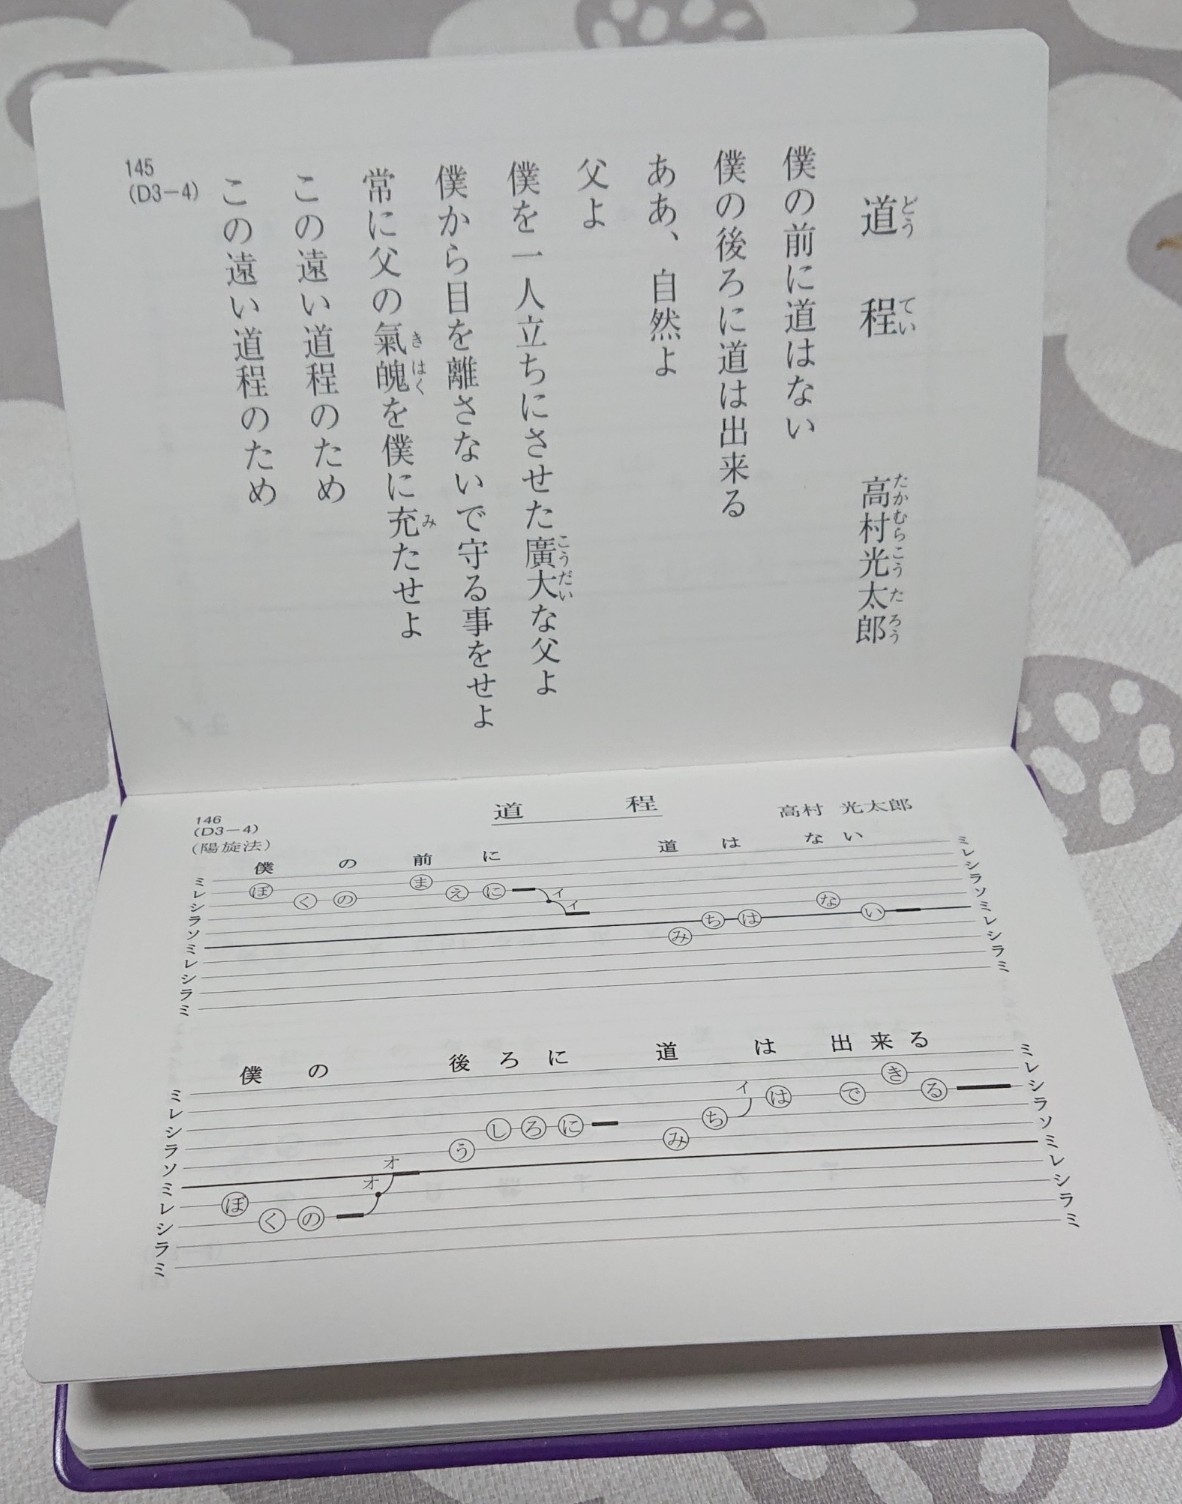 道程 高村光太郎
どう てい たかむらこうたろう
僕の前に道はない
僕の後ろに道は出来る
ああ、自然よ
父よ
僕を一人立ちにさせた廣大な父よ
こうだい
僕から目を離さないで守る事をせよ
常に父の氣魄を僕に充たせよ
きはく み
この遠い道程のため
この遠い道程のため
145
(D3-4)
道程 高村 光太郎
146
(D3-4)
(陽旋法)
僕の前に 道はない
ミ
レ
シ
ラ
ソ
ミ
レ
シ
ラ
ミ
ぼくの まえに イ イ みちは ない
ミ
レ
シ
ラ
ソ
ミ
レ
シ
ラ
ミ
僕の 後ろに 道は 出来る
ミ
レ
シ
ラ
ソ
ミ
レ
シ
ラ
ミ
ぼくの オ オ うしろに みち イ は できる
ミ
レ
シ
ラ
ソ
ミ
レ
シ
ラ
ミ